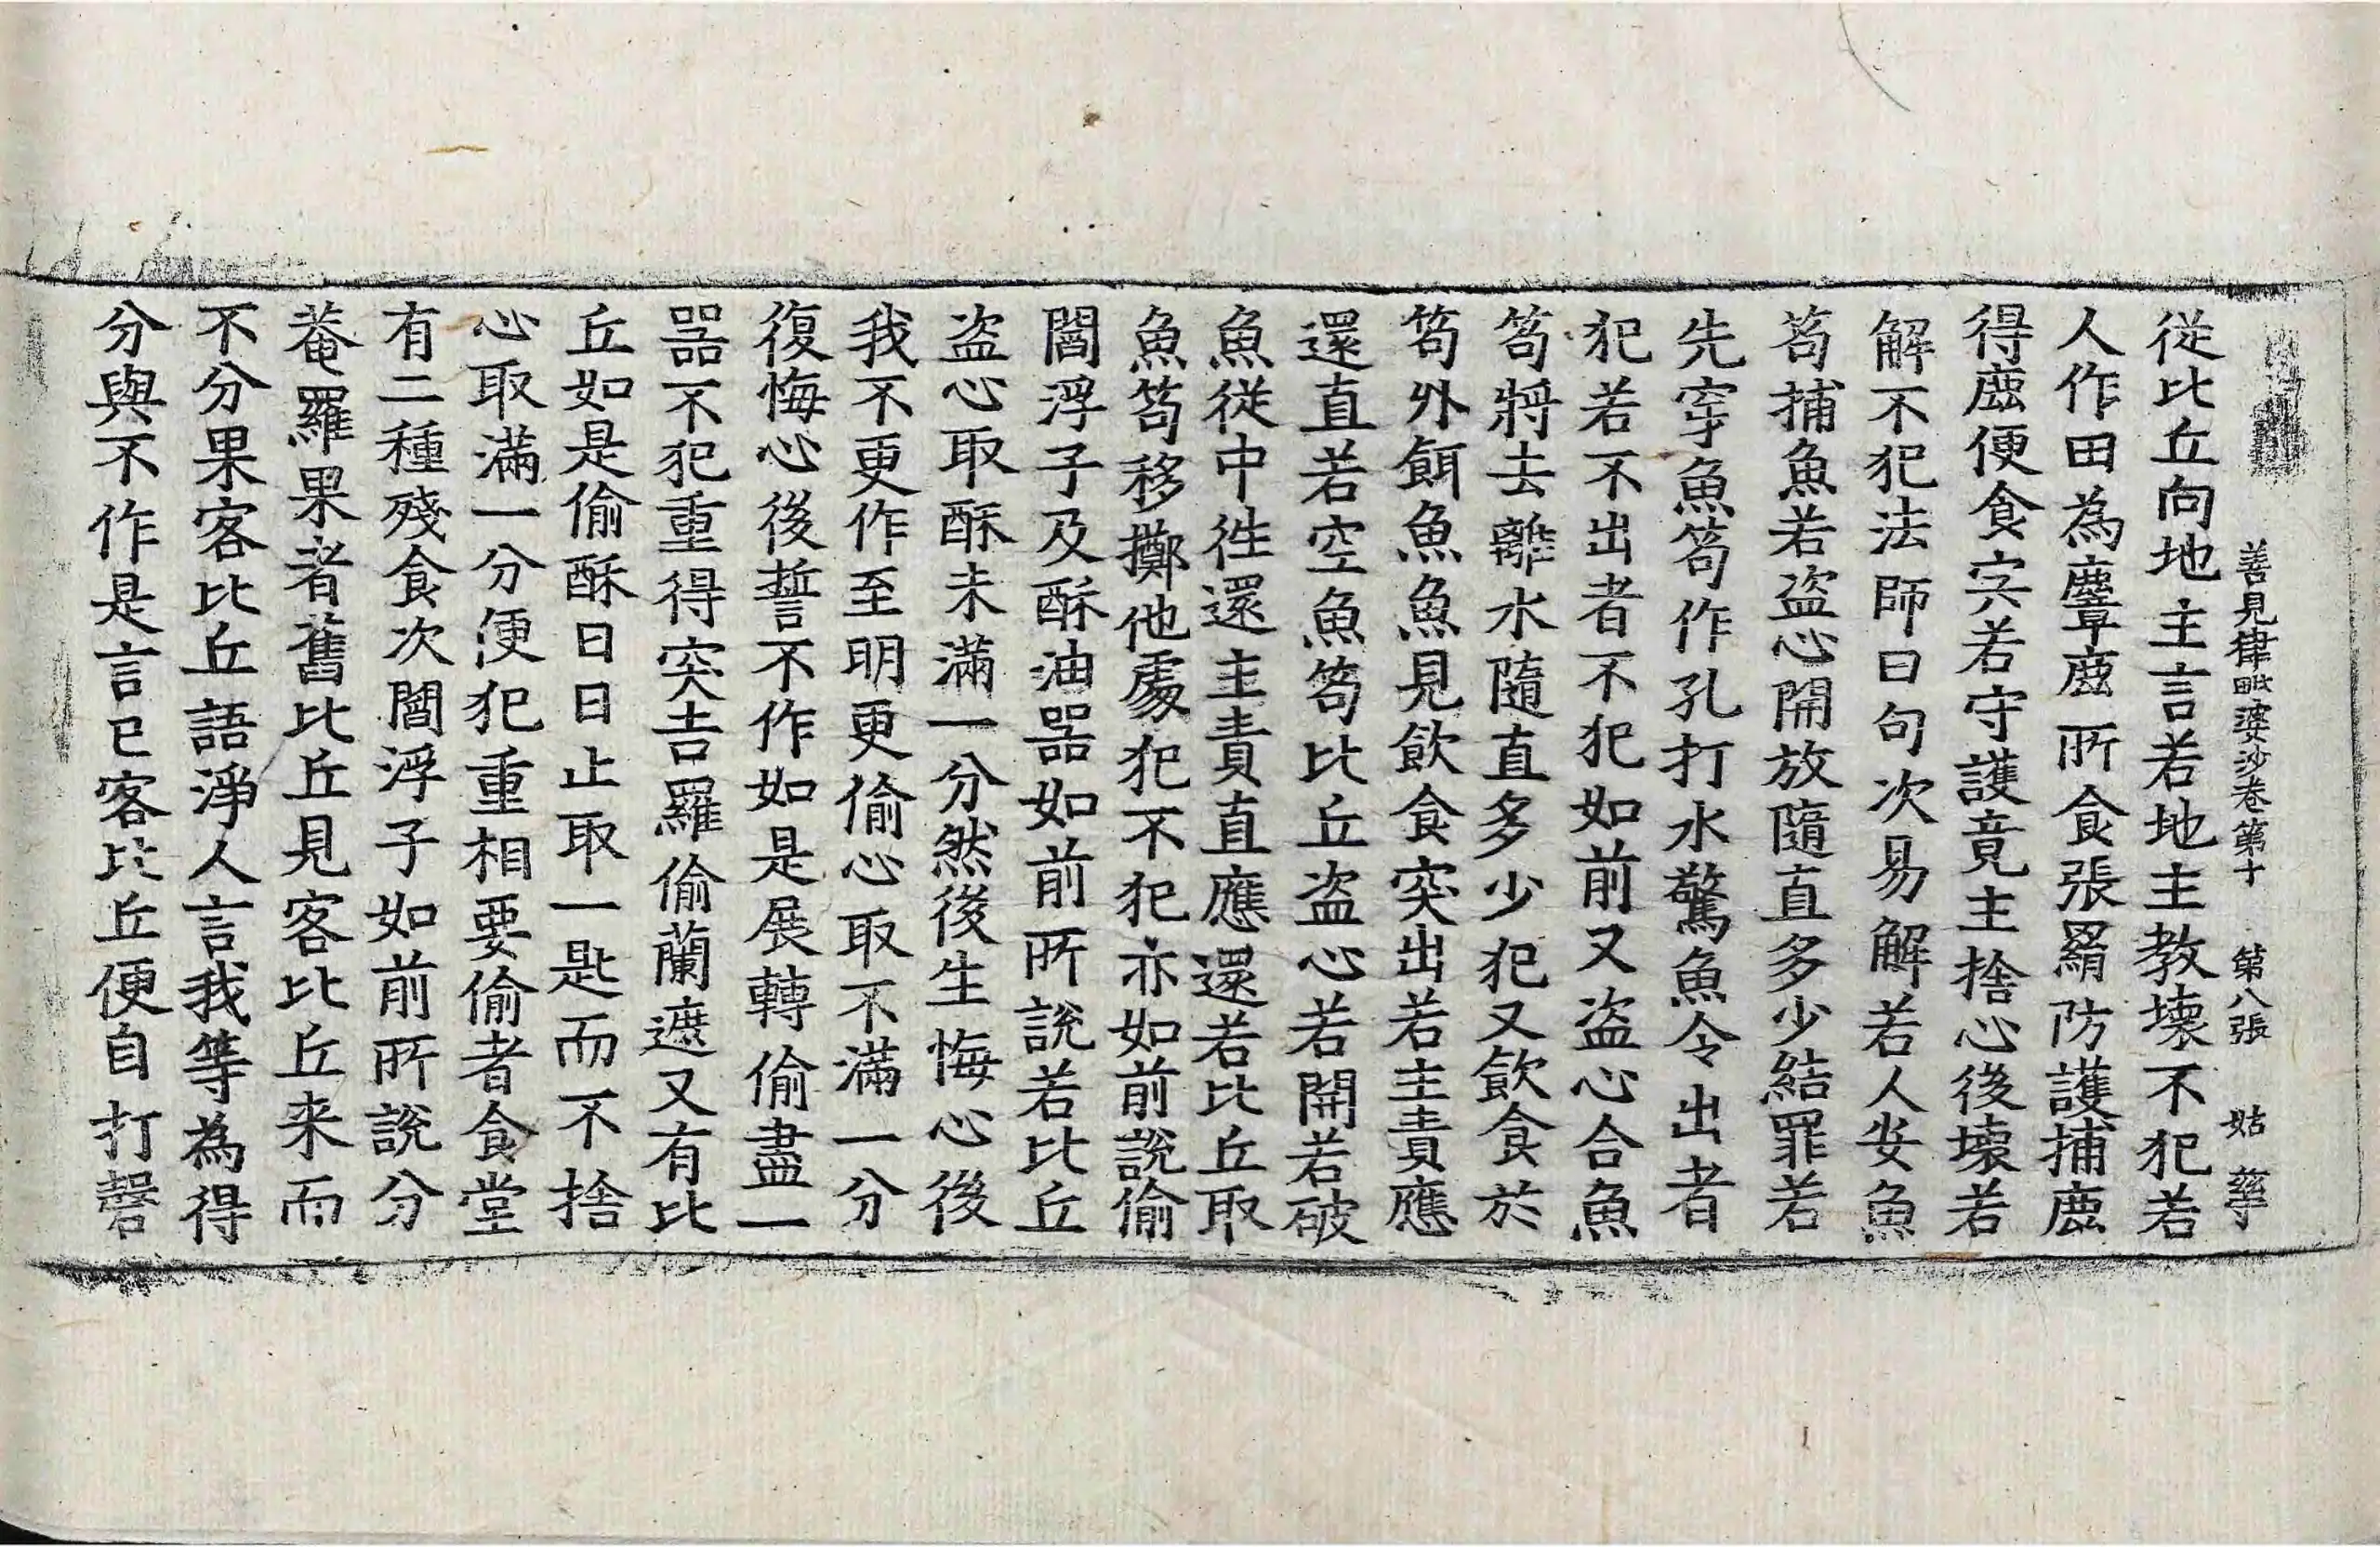 善見律毗婆沙卷第十 第八張 姑 㘽
從比丘向地主言若地主教壞不犯若
人作田為麞鹿所食張羂防護捕鹿
得鹿便食宍若守護竟主捨心後壞若
解不犯法師曰句次易解若人安魚
笱捕魚若盜心開放隨直多少結罪若
先穿魚笱作孔打水驚魚令出者
犯若不出者不犯如前又盜心合魚
笱將去離水隨直多少犯又飲食於
笱外餌魚魚見飲食突出若主責應
還直若空魚笱比丘盜心若開若破
魚從中徃還主責直應還若比丘取
魚笱移擲他處犯不犯亦如前說偷
閻浮子及酥油器如前所說若比丘
盜心取酥未滿一分然後生悔心後
我不更作至明更偷心取不滿一分
復悔心後誓不作如是展轉偷盡一
器不犯重得突吉羅偷蘭遮又有比
丘如是偷酥日日止取一匙而不捨
心取滿一分便犯重相要偷者食堂
有二種殘食次閻浮子如前所說分
菴羅果者舊比丘見客比丘来而
不分果客比丘語淨人言我等為得
分與不作是言已客比丘便自打磬